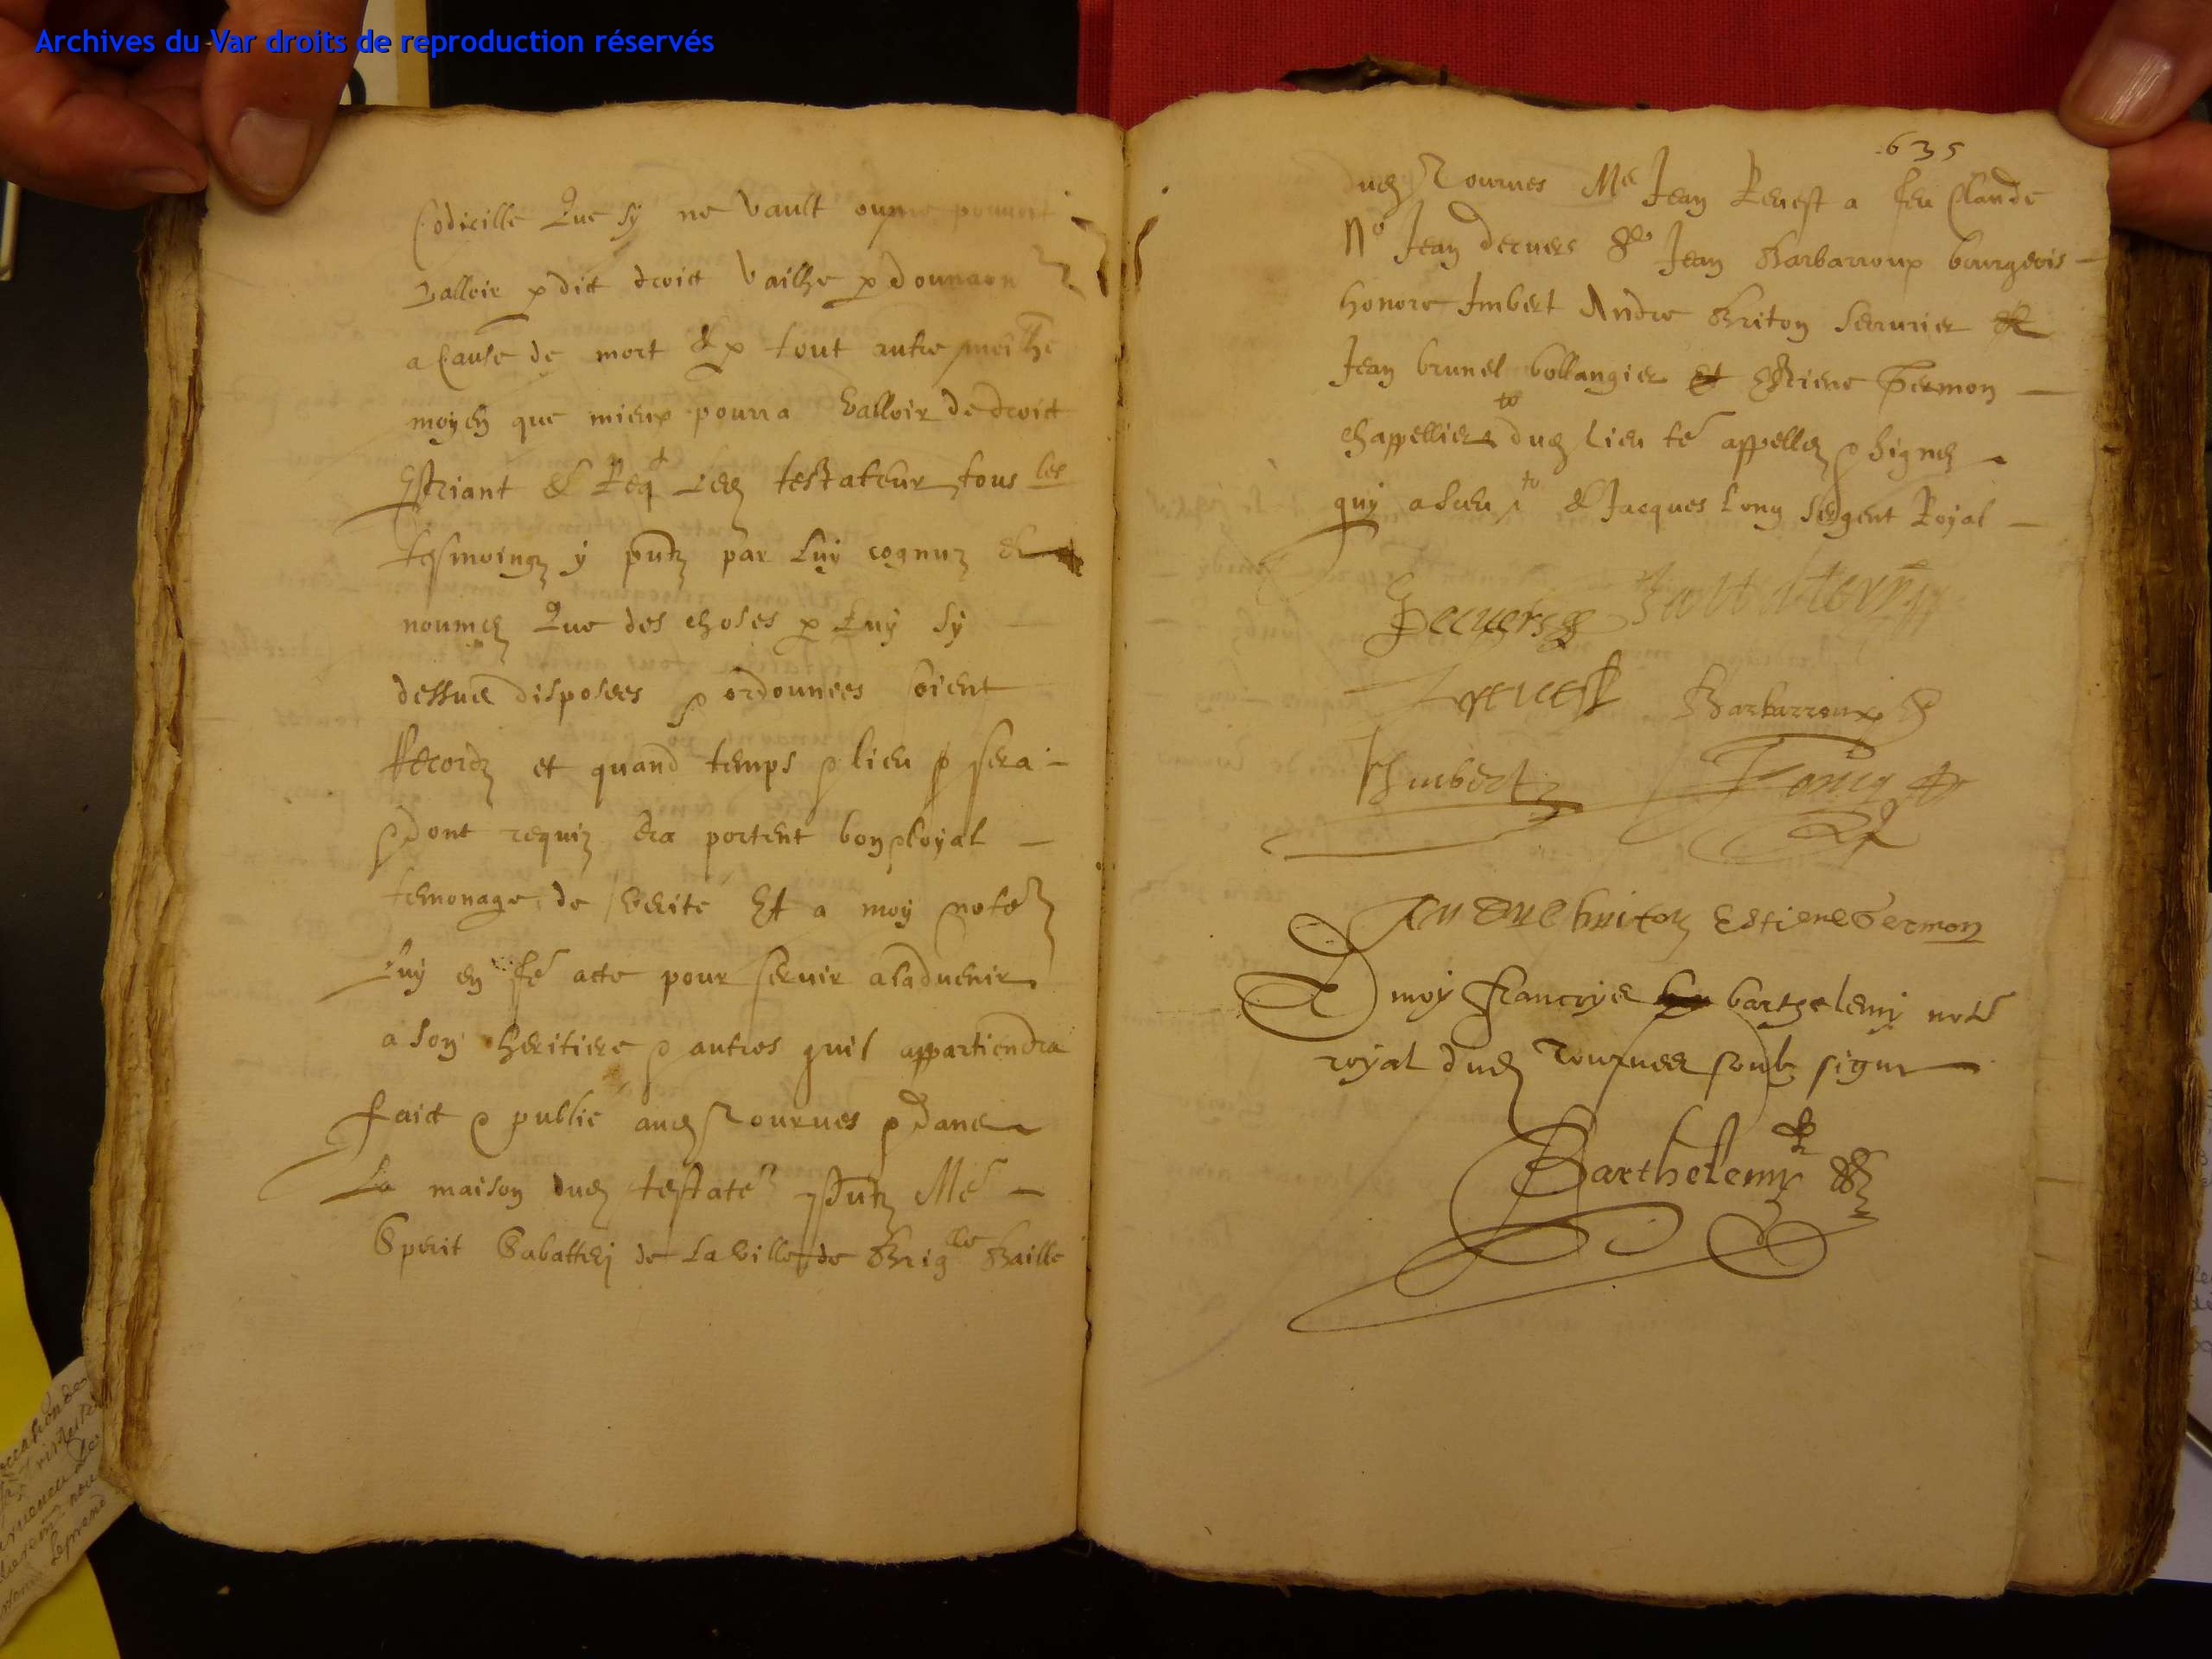 Archives du Var droits de reproduction réservés
Codicille Que sy ne vault ou
valloir p dit droict vailhe p dounaon
a Cause de mort & p tout autre
moyen que mieux pourra valloir de droict
& Req led testateur tous les
tesmoingz y pntz par luy cognuz &
noumez Que des choses p Luy sy
dessus disposees & ordounees soient
Recordz et quand temps & lieu sera
& dont requiz era portent bon & loyal
temonage de verite Et a moy notere
Luy en fe acte pour servir aladvenir
a son heritiere & autres quil appartiendra
faict & publie aud Tourves & dans
La maison dud testate pntz Me
Sperit Sabattery de La ville de Briglle Baille
635
dud Tourves Me Jean Revest a feu Claude
No Jean decuers Jean Barbarroux bourgeois
honore Imbert Andre Briton serrurier &
Jean brunel bollangier et Estiene Germon
chappelliers dud lieu te appellez & signez
quy a sceu & Jacques Long sergent Royal
Decuers
Revest Barbarroux
Humbert Long
Andre briton Estiene Germon
moy francoys barthelemy notre
royal dud Tourves soubz signe
Barthelemy